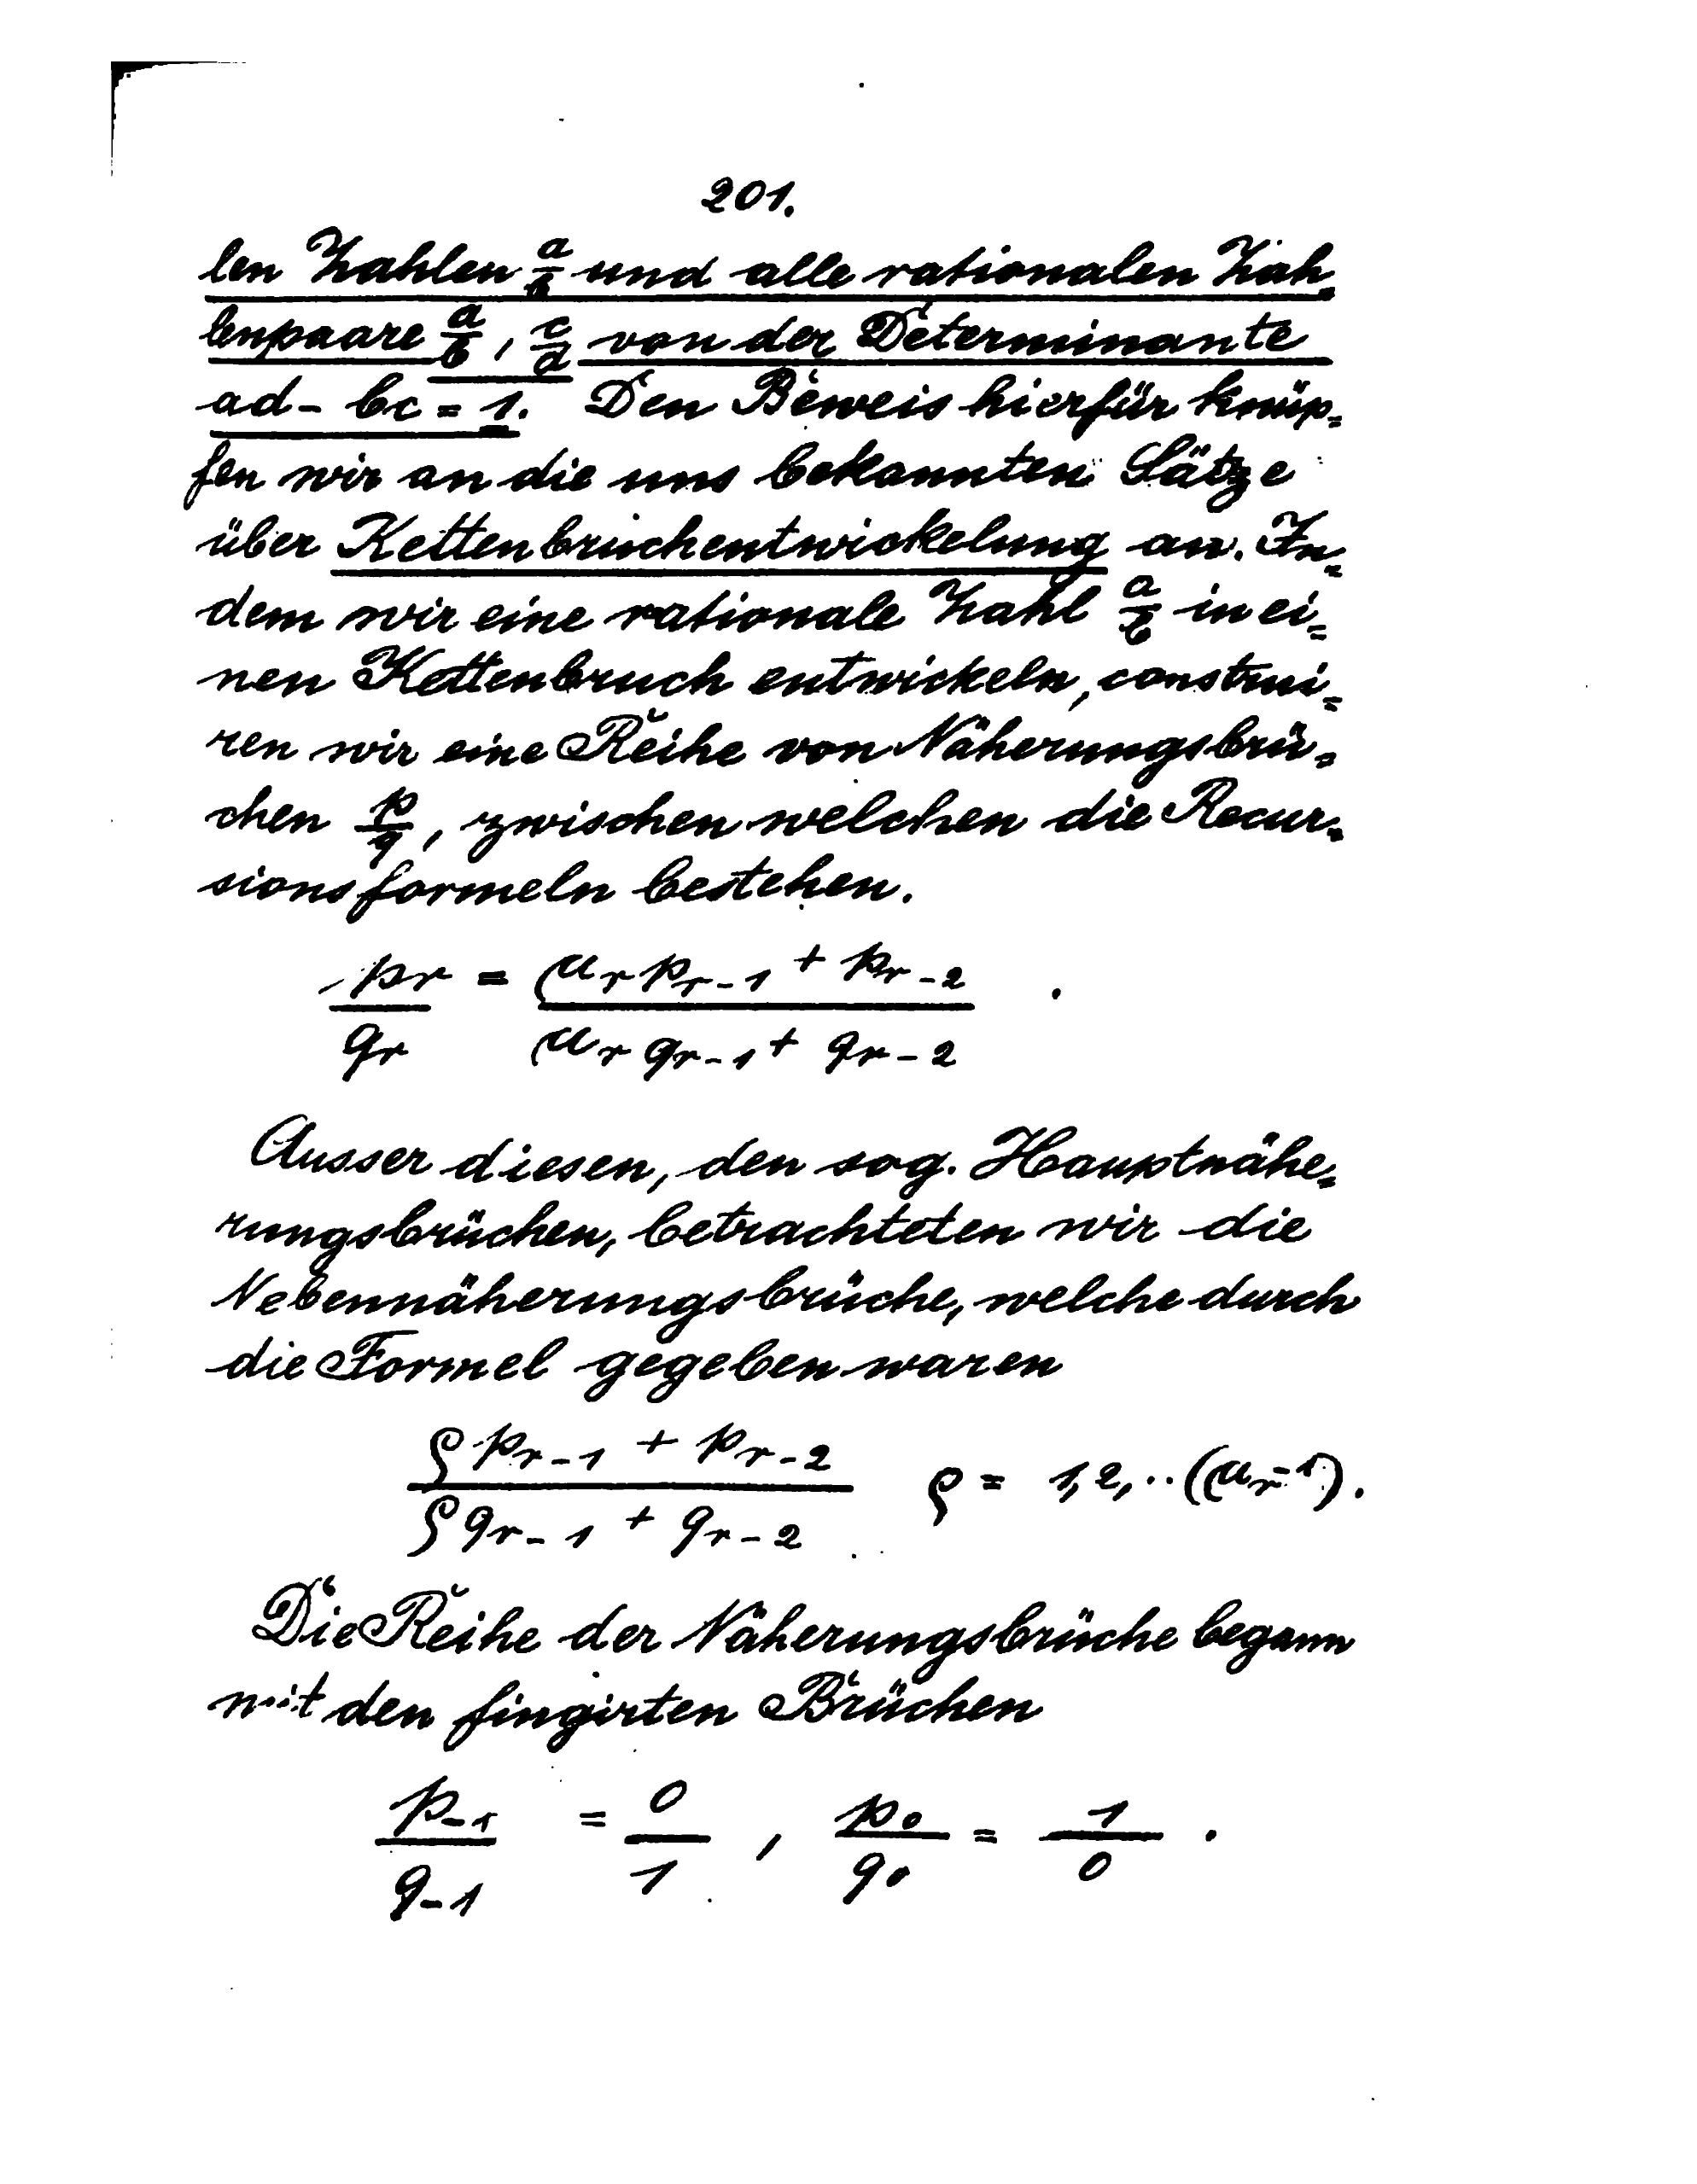 201.
len Zahlen a/b und alle rationalen Zah=
lenpaare a/b, c/d von der Determinante
ad - bc = 1. Den Beweis hierfür knüp=
fen wir an die uns bekannten Sätze
über Kettenbruchentwickelung an. In=
dem wir eine rationale Zahl a/b in ei=
nen Kettenbruch entwickeln, construi=
ren wir eine Reihe von Näherungsbrü=
chen p/q, zwischen welchen die Recur=
sionsformeln bestehen.
p_r/q_r = (μ_r p_{r-1} + p_{r-2})/(μ_r q_{r-1} + q_{r-2}).
Ausser diesen, den sog. Hauptnähe=
rungsbrüchen, betrachteten wir die
Nebennäherungsbrüche, welche durch
die Formel gegeben waren
(ρ p_{r-1} + p_{r-2})/(ρ q_{r-1} + q_{r-2}) ρ = 1, 2, ..(μ_r - 1).
Die Reihe der Näherungsbrüche begann
mit den fingirten Brüchen
p_{-1}/q_{-1} = 0/1, p_0/q_0 = 1/0.